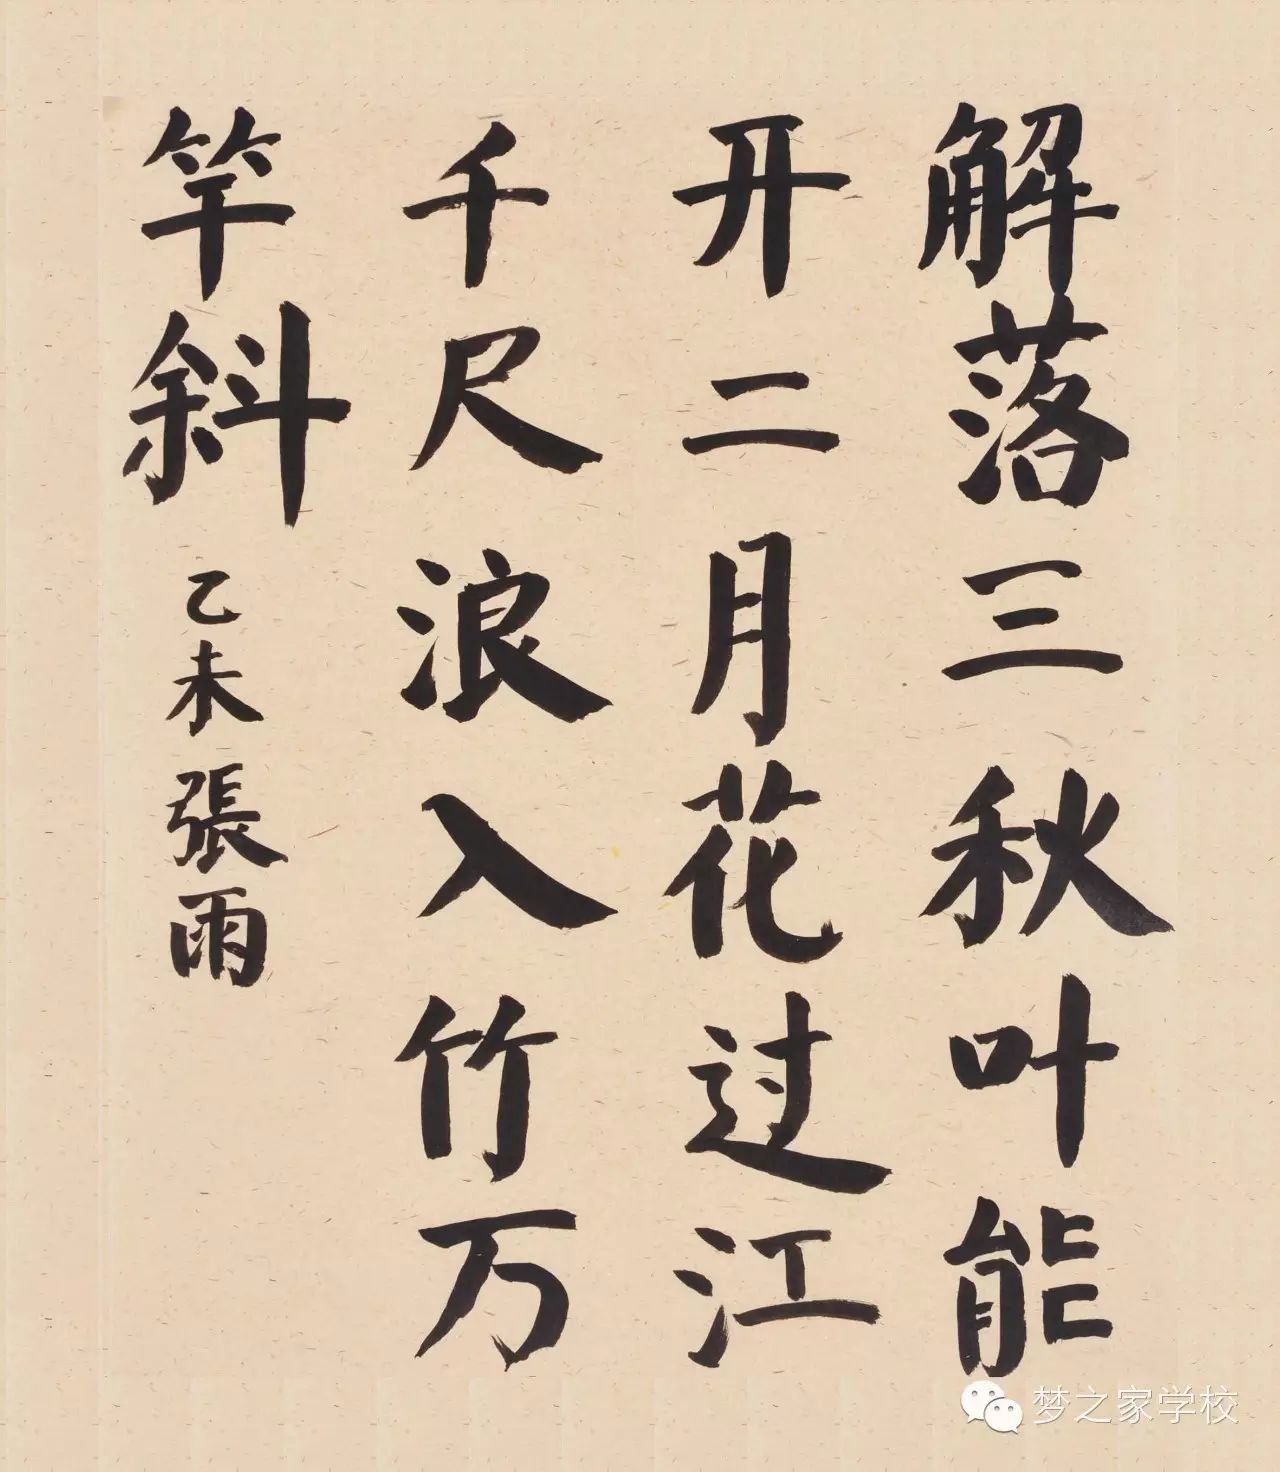 解落三秋叶能
开二月花过江
千尺浪入竹万
竿斜
乙未 張雨
梦之家学校